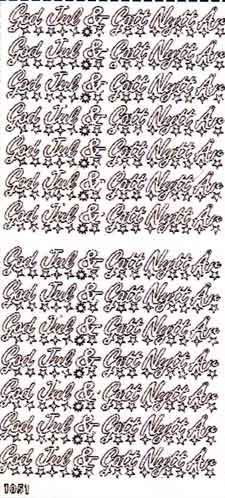 God Jul & Gott Nytt År
God Jul & Gott Nytt År
God Jul & Gott Nytt År
God Jul & Gott Nytt År
God Jul & Gott Nytt År
God Jul & Gott Nytt År
God Jul & Gott Nytt År
God Jul & Gott Nytt År
God Jul & Gott Nytt År
God Jul & Gott Nytt År
God Jul & Gott Nytt År
God Jul & Gott Nytt År
God Jul & Gott Nytt År
God Jul & Gott Nytt År
1051